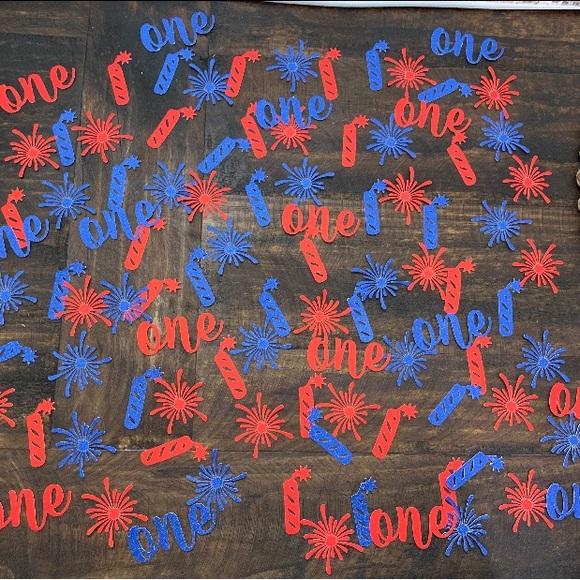 one
one
one
one
one
one
one
one
one
one
one
on
one
one
one
on